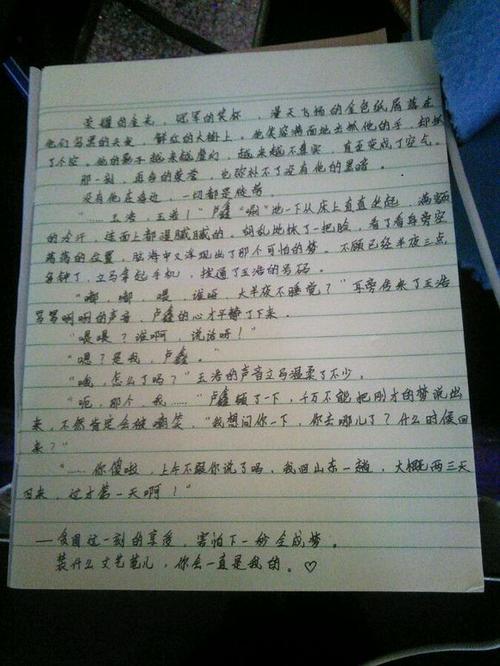 荣耀的金光，冠军的奖杯，漫天飞扬的金色纸屑落在
他们乌黑的头发，鲜红的大褂上。他笑容满面地去抓他的手，却抓
了个空。他的影子越来越虚幻，越来越不真实，直至变成了空气。
那一刻，再多的荣誉，也弥补不了没有他的黑暗。
没有他在身边，一切都是徒劳
“……王浩，王浩！”卢鑫“唰”地一下从床上直直坐起，满额
的冷汗，连面上都湿腻腻的。胡乱地抹了一把脸，看了看身旁空
荡荡的位置，脑海中又浮现出了那个可怕的梦。不顾已经半夜三点
多钟了，立马拿起手机，拨通了王浩的号码。
“嘟，嘟，喂，谁呀，大半夜不睡觉？”耳旁传来了王浩
骂骂咧咧的声音，卢鑫的心才平静了下来。
“喂喂？谁啊，说话呀！”
“喂？是我，卢鑫。”
“哦，怎么了吗？”王浩的声音立马温柔了不少。
“呃，那个，我……”卢鑫顿了一下，千万不能把刚才的梦说出
来，不然肯定会被嘲笑，“我想问你一下，你去哪儿了？什么时候回
来？”
“……你傻啦，上午不跟你说了吗，我回山东一趟，大概两三天
回来，这才第一天啊！”
——贪图这一刻的享受，害怕下一秒全成梦。
装什么文艺范儿，你会一直是我的。♡